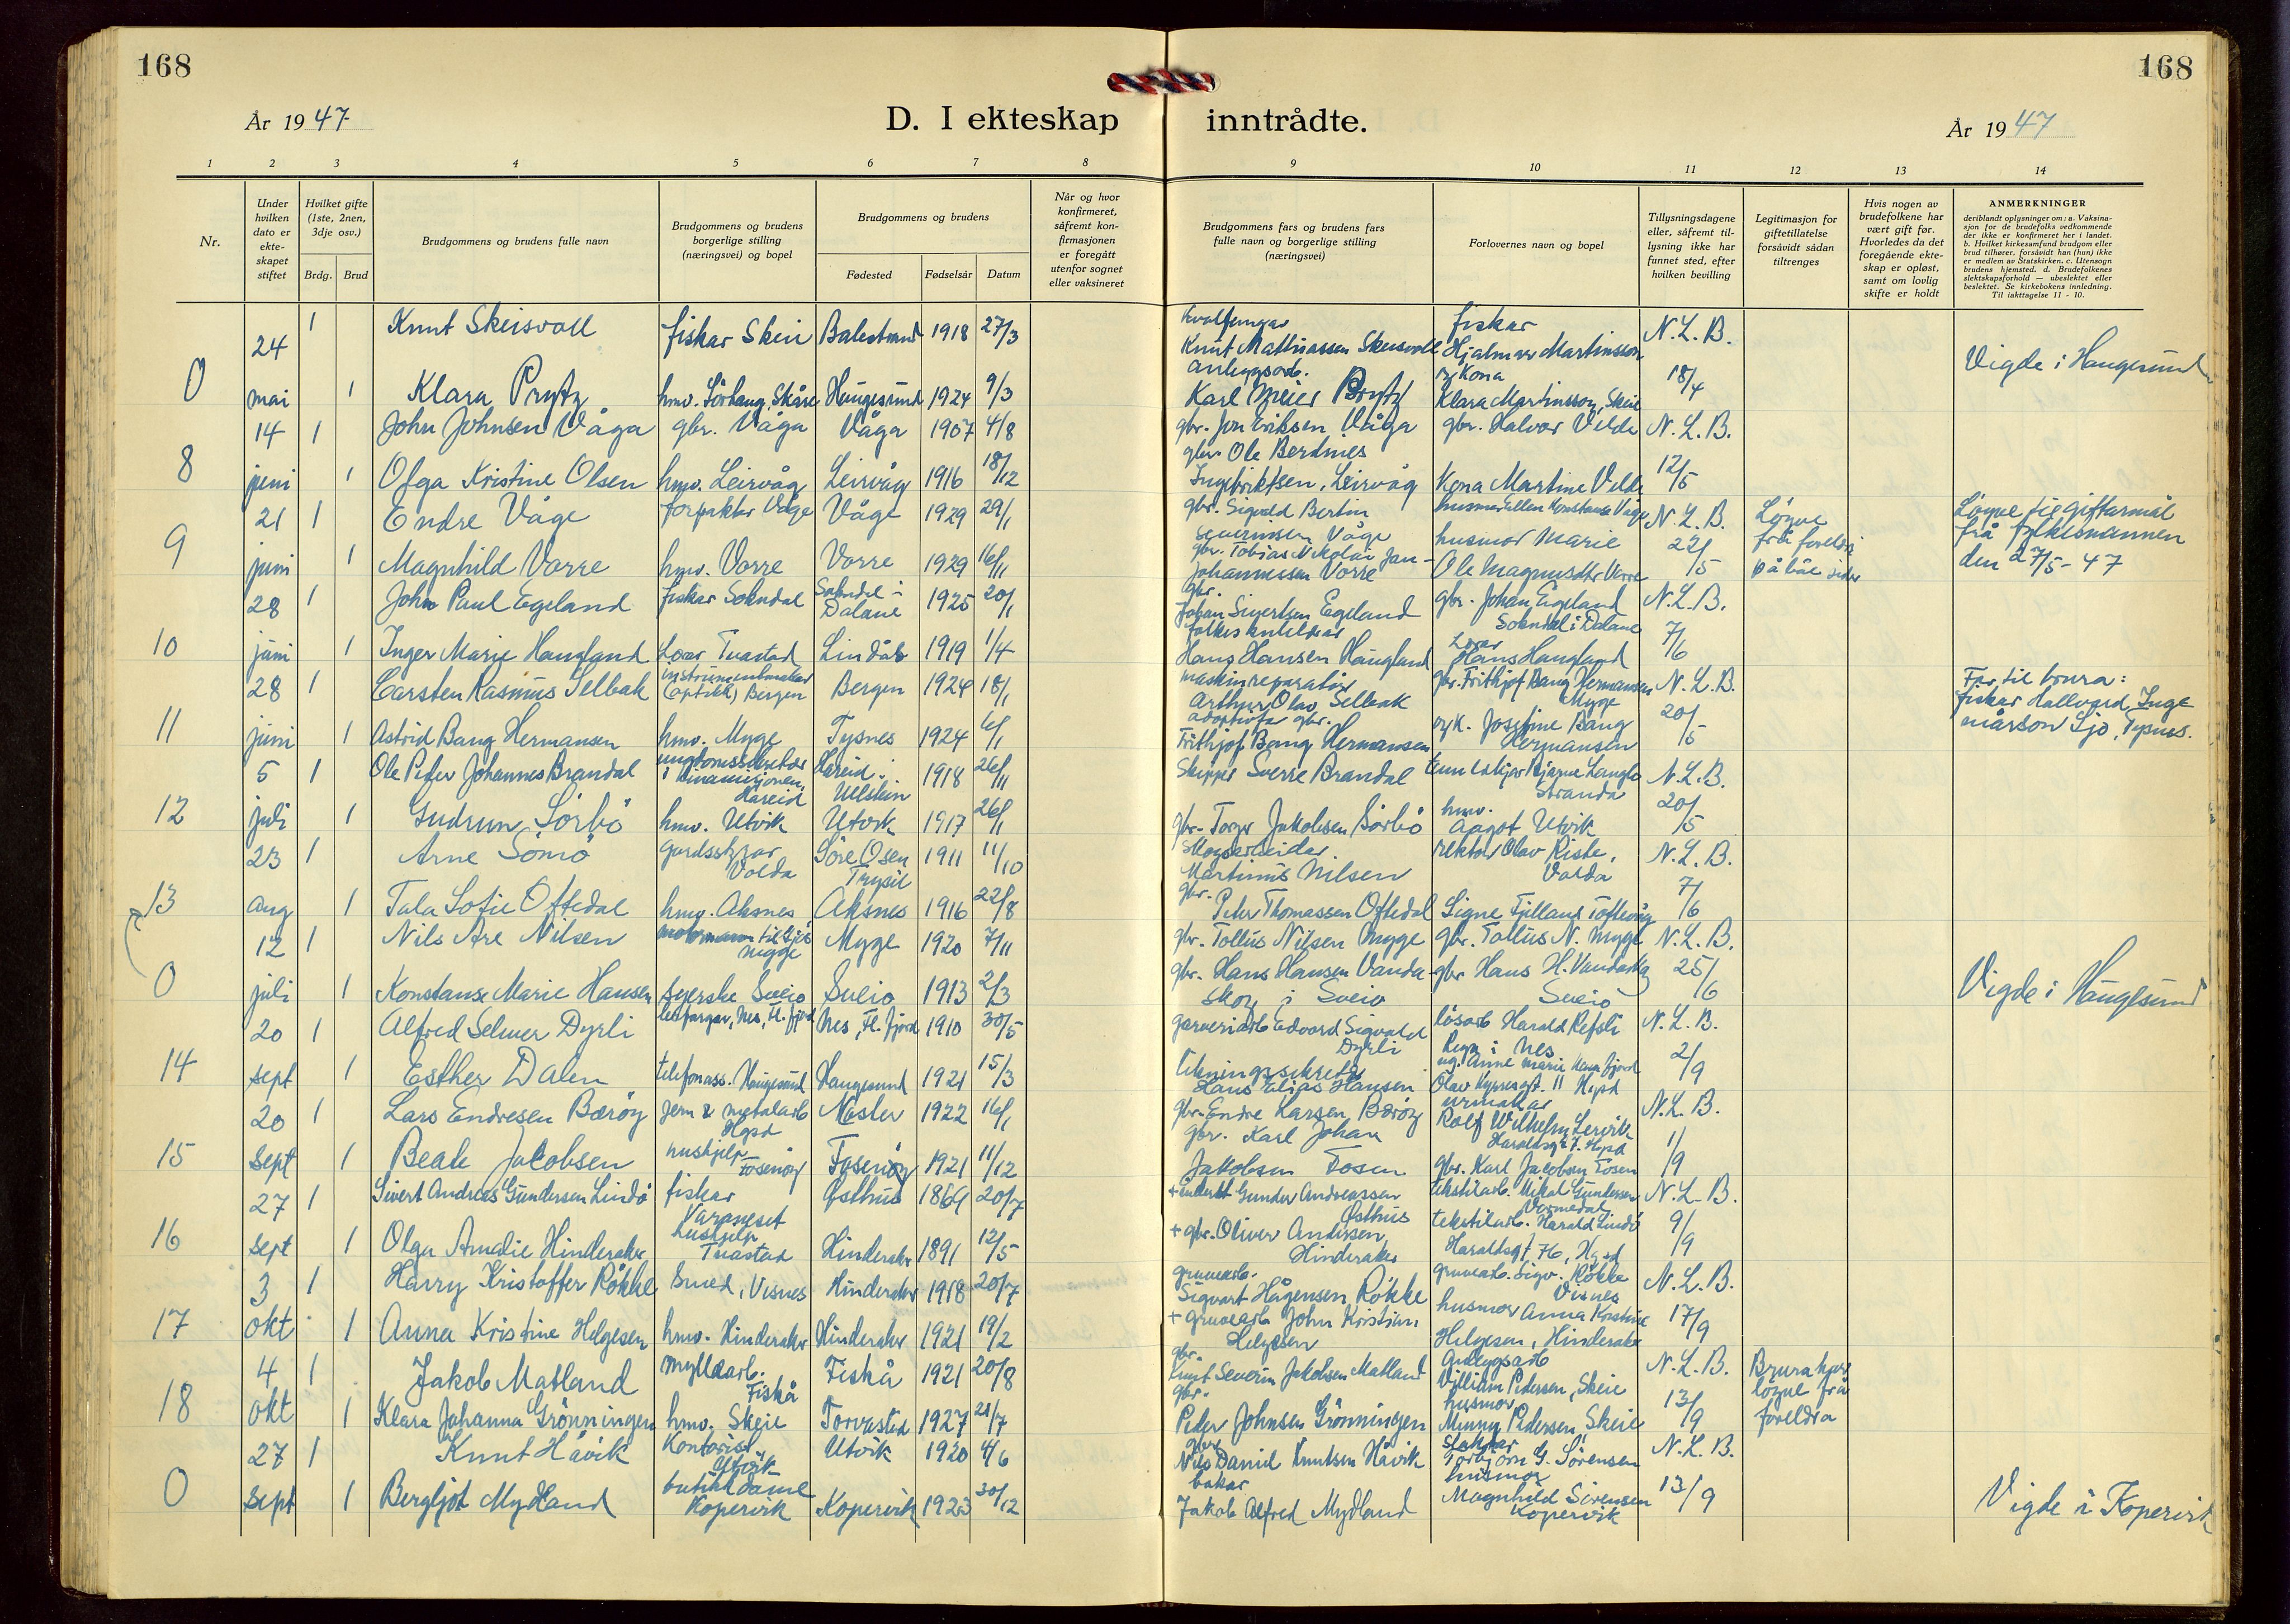 168
168
År 1947
D. I ekteskap inntrådte.
År 1947
1 2 3 4 5 6 7 8 9 10 11 12 13 14
Nr.
Under hvilken dato er ekte-skapet stiftet
Hvilket gifte (1ste, 2nen, 3dje osv.)
Brdg. Brud
Brudgommens og brudens fulle navn
Brudgommens og brudens borgerlige stilling (næringsvei) og bopel
Brudgommens og brudens
Fødested Fødselsår Datum
Når og hvor konfirmeret, såfremt kon-firmasjonen er foregått utenfor sognet eller vaksineret
Brudgommens fars og brudens fars fulle navn og borgerlige stilling (næringsvei)
Forlovernes navn og bopel
Tillysningsdagene eller, såfremt til-lysning ikke har funnet sted, efter hvilken bevilling
Legitimasjon for giftetillatelse forsåvidt sådan tiltrenges
Hvis nogen av brudefolkene har vært gift før. Hvorledes da det foregående ekte-skap er opløst, samt om lovlig skifte er holdt
ANMERKNINGER
deriblandt oplysninger om: a. Vaksina-sjon for de brudefolks vedkommende der ikke er konfirmeret her i landet. b. Hvilket kirkesamfund brudgom eller brud tilhører, forsåvidt han (hun) ikke er medlem av Statskirken. c. Utensogn brudens hjemsted. d. Brudefolkenes slektskapsforhold — ubeslektet eller beslektet. Se kirkebokens innledning. Til iakttagelse 11 - 10.
24 1 Knut Skeisvoll fiskar Skeie Balestrand 1918 27/3 Kvalfangar Knut Mathiassen Skeisvoll fiskar Hjalmar Martinsson N.L.B.
0 mai 1 Klara Prytz hmv. Sörhaug, Skåre Haugesund 1924 9/3 anleggsarb. Karl Meier Prytz og Kona Klara Martinsson, Skeie 18/4 Vigde i Haugesund
14 1 John Johnsen Våga gbr. Våga Våga 1907 4/8 gbr. Jon Eriksen Våga gbr. Halvor Velde N.L.B.
8 juni 1 Olga Kristine Olsen hmv. Leirvåg Leirvåg 1916 18/12 gbr. Ole Berdines Ingebriktsen, Leirvåg Kona Martine Velde 12/5
21 1 Endre Våge forpaktar Våge Våge 1929 29/1 gbr. Sigvald Bertin Severinsen Våge husmor Ellen Konstanse Våge N.L.B. Løyve frå foreldri
9 juni 1 Magnhild Vorre hmv. Vorre Vorre 1929 16/11 gbr. Tobias Nikolai Jan-Johannessen Vorre husmor Marie Ole Magnusdtr Vorre 22/5 på båe sider Løyve til giftarmål frå fylkesmannen den 27/5-47
28 1 John Paul Egeland fiskar Sokndal Sokndal i Dalane 1925 20/1 gbr. Johan Sivertsen Egeland gbr. Johan Egeland Sokndal i Dalane N.L.B.
10 juni 1 Inger Marie Haugland Lærar Tuastad Lindås 1919 1/4 Hans Hansen Haugland Lærar Hans Haugland 7/6
28 1 Carsten Rasmus Selbak instrumentmakar (optikk) Bergen Bergen 1924 18/1 maskinreparatör Arthur Olav Selbak gbr. Frithjof Bang Hermansen Myge N.L.B.
11 juni 1 Astrid Bang Hermansen hmv. Myge Tysnes 1924 6/1 adoptivfar gbr. Frithjof Bang Hermansen og K. Josefine Bang Hermansen 20/5 Far til brura: fiskar Hallvard Ingemårson Sjo, Tysnes.
5 1 Ole Peter Johannes Brandal ungdomssekretær i Kinamisjonen, Hareid Hareid i Ulstein 1918 26/11 Skipper Sverre Brandal Bjarne Langlo Stranda N.L.B.
12 juli 1 Gudrun Sörbö hmv. Utvik Utvik 1917 26/1 gbr. Torger Jakobsen Sörbö hmv. Aagot Utvik 20/5
23 1 Arne Sömo gardsstyrar Volda Söre Osen Trysil 1911 11/10 Skogsarbeidar Martinus Nilsen rektor Olav Riste, Volda N.L.B.
13 aug 1 Tala Sofie Oftedal hmv. Aksnes Aksnes 1916 22/8 gbr. Peter Thomassen Oftedal Signe Fjelland Toftevåg 7/6
12 1 Nils Are Nilsen motormann til sjös Mygge Myge 1920 7/11 gbr. Tollus Nilsen Mygge gbr. Tollus N. Myge N.L.B.
0 juli 1 Konstanse Marie Hansen syerske Sveio Sveio 1913 2/3 gbr. Hans Hansen Vandaskog i Sveio gbr Hans H. Vandaskog Sveio 25/6 Vigde i Haugesund
20 1 Alfred Selmer Dyrli Nes, H. fjord Nes, H. fjord 1910 30/5 garveriarb Edvard Sigvald Dyrli lösarb Harald Refsti i Nes N.L.B.
14 sept 1 Esther Dalen telefonass. Haugesund Haugesund 1921 15/3 Likningssekretær Hans Elias Hansen og Anne Marie Olav Kyrresgt. 11 Hgsd 2/9
20 1 Lars Endresen Bæröy jern & metalarb Hgsd Nesler 1922 16/1 gbr. Endre Larsen Bæröy urmakar Rolf Wilhelm Lervik Haraldsgt. 7. Hgsd N.L.B.
15 sept 1 Beate Jakobsen hushjelp Fosenöy Fosenöy 1921 11/12 gbr. Karl Johan Jakobsen Fosen gbr. Karl Jacobsen Fosen 1/9
27 1 Sivert Andreas Gundersen Lindö fiskar Varaneset Østhus 1869 20/7 + Gunder Andreassen Østhus tekstilarb. Mikal Gundersen Vormedal N.L.B.
16 sept 1 Olga Amalie Hinderaker hushjelp Tuastad Hinderaker 1891 12/5 + gbr. Oliver Andersen Hinderaker tekstilarb. Harald Lindö Haraldsgt 76, Hgsd 9/9
3 1 Harry Kristoffer Rökke Smed, Visnes Hinderaker 1918 20/7 gruvearb. Sigvart Hågensen Rökke gruvearb. Sigv. Rökke Visnes N.L.B.
17 okt 1 Anna Kristine Helgesen hmv. Hinderaker Hinderaker 1921 19/2 + gruvearb John Kristian Helgesen husmor Anna Kristine Helgesen, Hinderaker 17/9
4 1 Jakob Matland myllearb. Fiskå Fiskå 1921 20/8 gbr. Knut Severin Jakobsen Matland Anleggsarb Villiam Pedersen, Skeie N.L.B. Brura have löyve frå foreldra
18 okt 1 Klara Johanna Grönningen hmv. Skeie Torvastad 1927 21/7 gbr. Peder Johnsen Grönningen husmor Minny Pedersen Skeie 13/9
27 1 Knut Håvik Kontorist Utvik Utvik 1920 4/6 gbr Nils Daniel Knutsen Håvik Torbjörn G. Sörensen N.L.B.
0 sept 1 Bergljot Mydland butikkdame Kopervik Kopervik 1923 30/12 bakar Jakob Alfred Mydland husmor Magnhild Sörensen Kopervik 13/9 Vigde i Kopervik